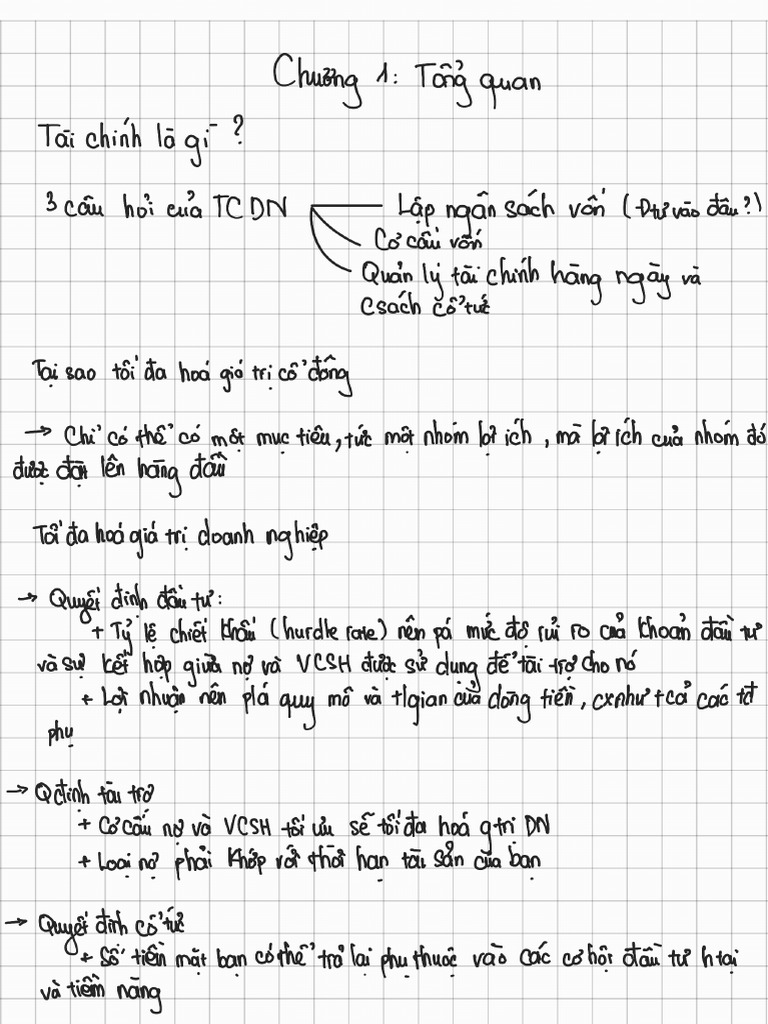 Chương 1: Tổng quan
Tài chính là gì ?
3 câu hỏi của TCDN
Lập ngân sách vốn (Đtư vào đâu?)
Cơ cấu vốn
Quản lý tài chính hàng ngày và
Csách cổ tức
Tại sao tối đa hoá giá trị cổ đông
→ Chỉ có thể có một mục tiêu, tức một nhóm lợi ích, mà lợi ích của nhóm đó
được đặt lên hàng đầu
Tối đa hoá giá trị doanh nghiệp
→ Quyết định đầu tư:
+ Tỷ lệ chiết khấu (hurdle rate) nên pá mức độ rủi ro của khoản đầu tư
và sự kết hợp giữa nợ và VCSH được sử dụng để tài trợ cho nó
+ Lợi nhuận nên plá quy mô và tlgian của dòng tiền, cxnhư tcả các tđ
phụ
→ Qđịnh tài trợ
+ Cơ cấu nợ và VCSH tối ưu sẽ tối đa hoá gtrị DN
+ Loại nợ phải khớp với thời hạn tài sản của bạn
→ Quyết định cổ tức
+ Số tiền mặt bạn có thể trả lại phụ thuộc vào các cơ hội đầu tư htại
và tiềm năng